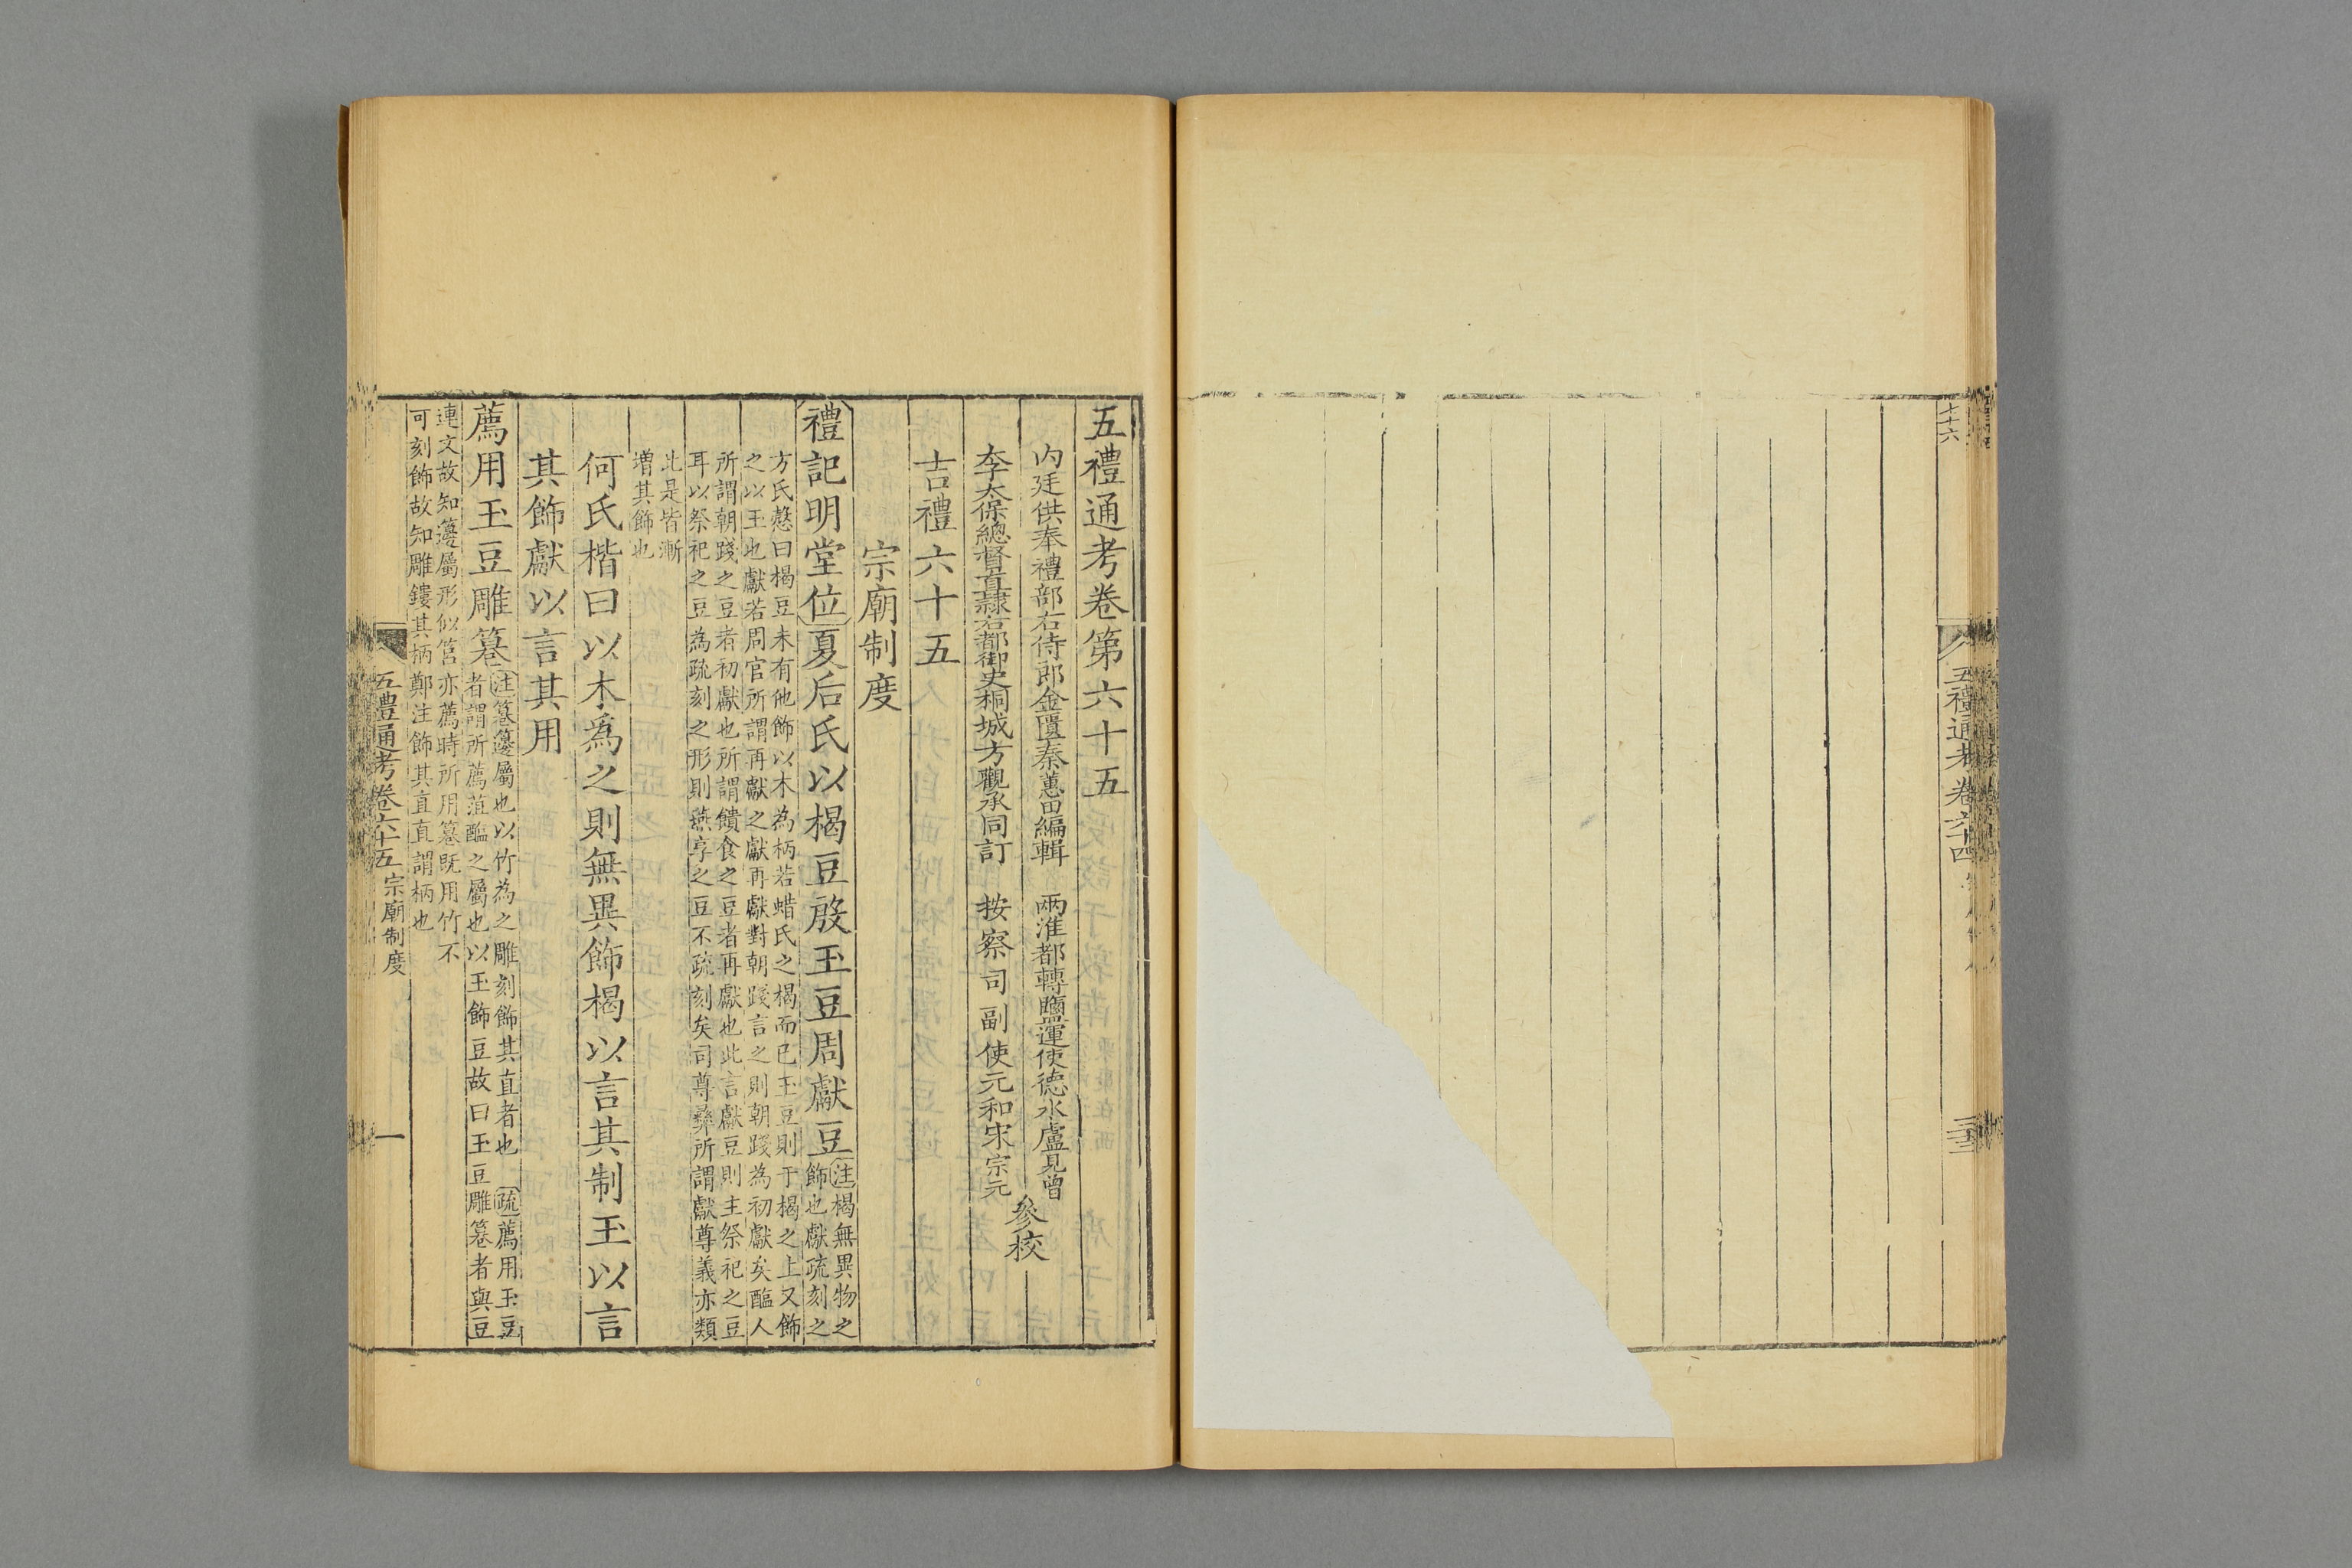 七十六
五禮通考卷六十四
三十三
五禮通考卷第六十五
內廷供奉禮部右侍郎金匱秦蕙田編輯　兩淮都轉鹽運使德水盧見曾
李太保總督直隸右都御史桐城方觀承同訂　按察司副使元和宋宗元
參校
吉禮六十五
宗廟制度
禮記明堂位夏后氏以楬豆殷玉豆周獻豆
注楬無異物之
飾也獻疏刻之
方氏慤曰楬豆未有他飾以木為柄若蜡氏之楬而已玉豆則于楬之上又飾
之以玉也獻若周官所謂再獻之獻再獻對朝踐言之則朝踐為初獻矣醢人
所謂朝踐之豆者初獻也所謂饋食之豆者再獻也此言獻豆則主祭祀之豆
耳以祭祀之豆為疏刻之形則燕享之豆不疏刻矣司尊彝所謂獻尊義亦類
此是皆漸
增其飾也
何氏楷曰以木爲之則無異飾楬以言其制玉以言
其飾獻以言其用
薦用玉豆雕篹
注篹籩屬也以竹為之雕刻飾其直者也　疏薦用玉豆
者謂所薦菹醢之屬也以玉飾豆故曰玉豆雕篹者與豆
連文故知籩屬形似筥亦薦時所用篹既用竹不
可刻飾故知雕鏤其柄鄭注飾其直直謂柄也
五禮通考卷六十五　宗廟制度
一